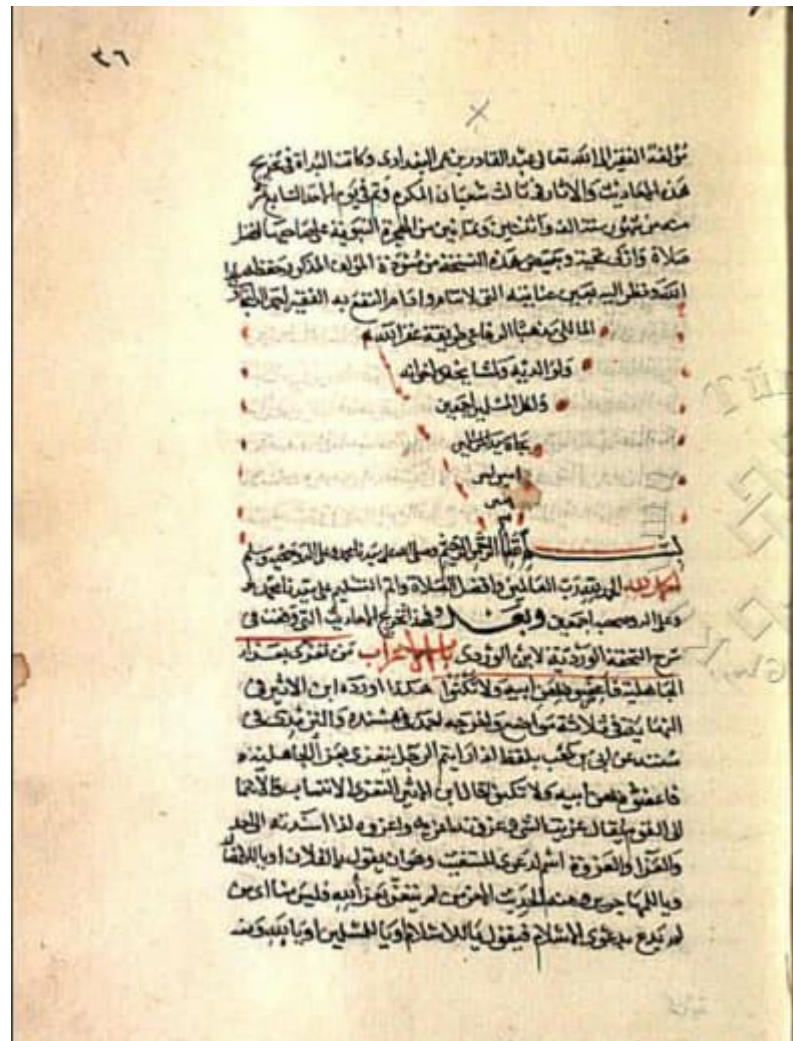 ٣٦
مؤلفه الفقير الى الله تعالى عبد القادر بن عمر البغدادي وكانت البداة في تخريج
هذه الاحاديث والاثار في ثالث شعبان المكرم وتم في يوم الاحد السابع عشر
منه من شهور سنة الف واثنتين وثمانين من الهجرة النبوية على صاحبها افضل
صلاة وازكى تحية وبييض هذه النسخة من مسودة المؤلف المذكور حفظه
الله ونظر اليه بعين عنايته التي لا تنام وادام النفع به الفقير
المالكي مذهبا الرفاعي طريقة غفر الله له
ولوالديه ولمشايخه ولاخوانه
ولكل المسلمين اجمعين
بجاه سيد المرسلين
امين امين
امين
بسم الله الرحمن الرحيم وصلى الله على سيدنا محمد وعلى اله وصحبه وسلم
الحمد لله رب العالمين وافضل الصلاة واتم التسليم على سيدنا محمد
وعلى اله وصحبه اجمعين وبعد فهذا تخريج الاحاديث التي وقعت في
شرح التحفة الوردية لابن الوردي باب الاعراب من تعزى بعزاء
الجاهلية فاعضوه بهن ابيه ولا تكنوا هكذا اورده ابن الاثير في
النهاية في ثلاثة مواضع واخرجه احمد في مسنده والترمذي في
سننه عن ابي بن كعب بلفظ اذا رايتم الرجل يتعزى بعزاء الجاهلية
فاعضوه بهن ابيه ولا تكنوا قال ابن الاثير التعزي الانتساب والانتما
الى القوم يقال عزيت الشي وعزوته اعزيه واعزوه اذا اسندته الى احد
والعزا والعزوة اسم لدعوى المستغيث وهو ان يقول يا لفلان او يا للانصار
ويا للمهاجرين ومنه الحديث الاخر من لم يتعز بعزا الله فليس منا اي من
لم يدع بدعوى الاسلام فيقول يا للاسلام او يا للمسلمين او يا لله ومنه